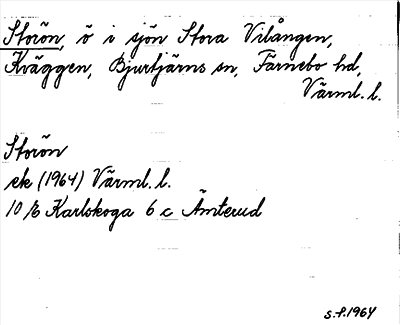 Storön, ö i sjön Stora Vilången,
Kväggen, Bjurtjärns sn, Färnebo hd,
Värml. l.
Storön
ek (1964) Värml. l.
10 E Karlskoga 6 c Ämterud
s.f. 1964